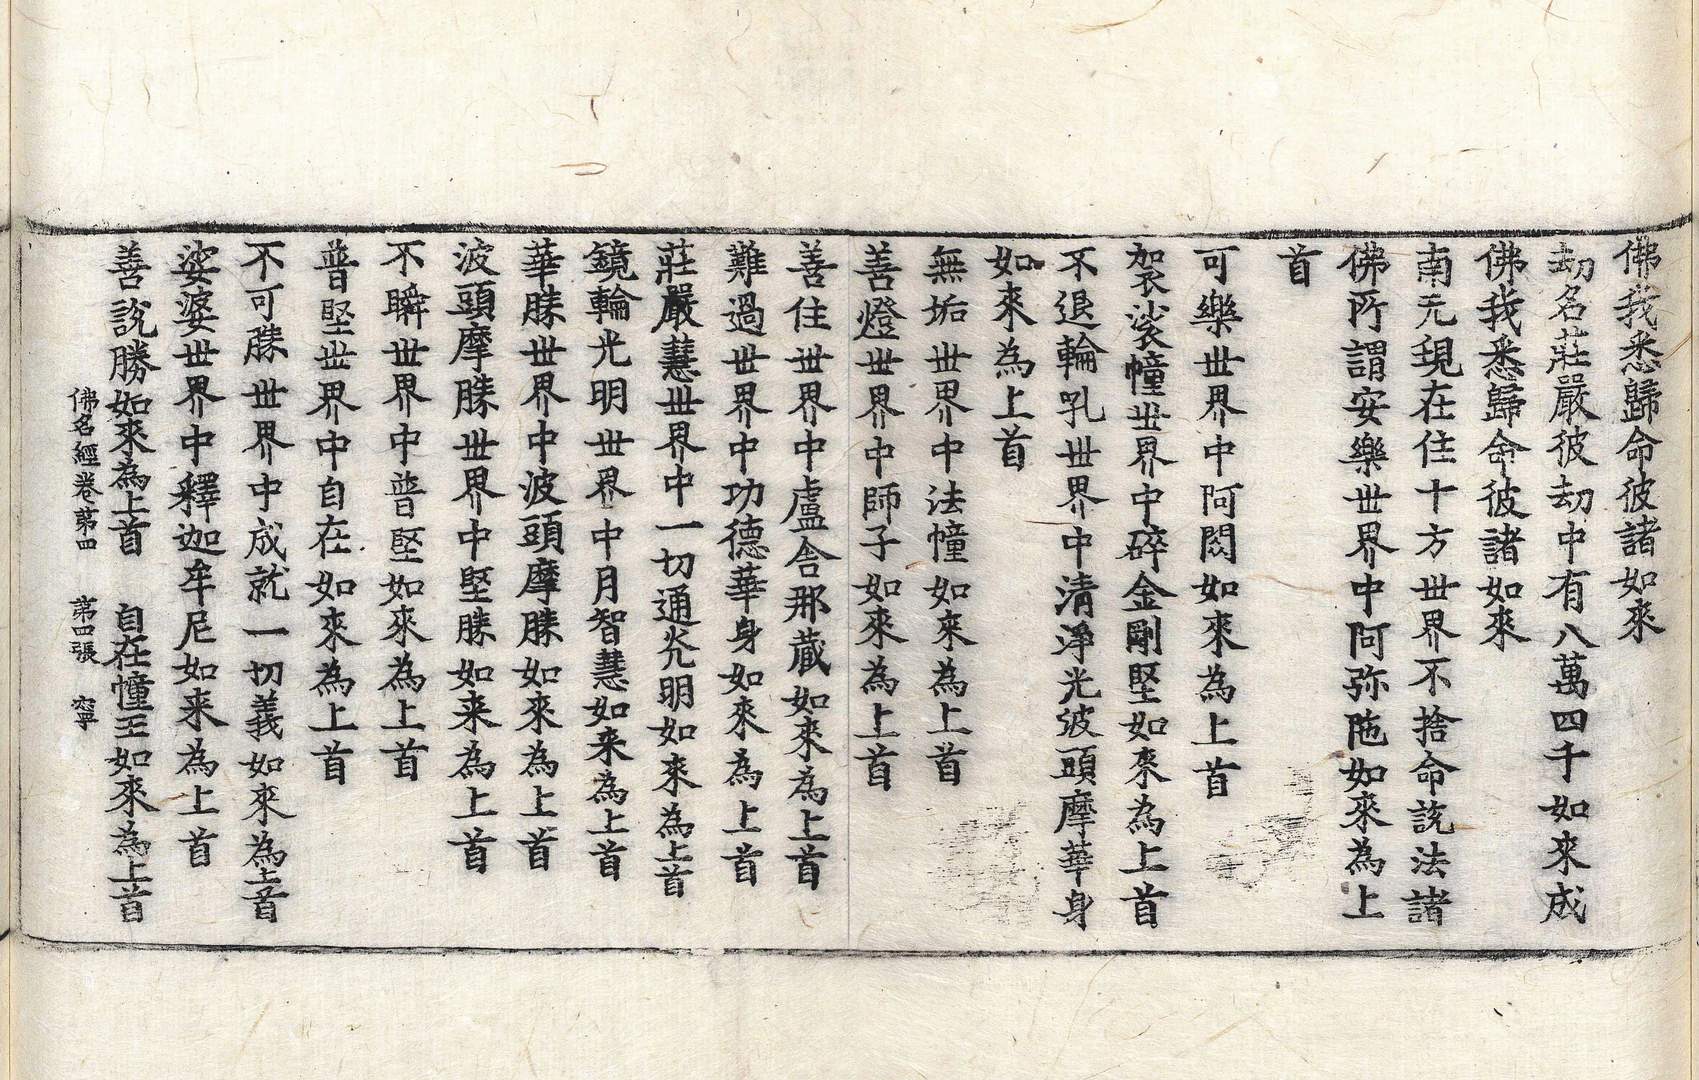 佛我悉歸命彼諸如來
劫名莊嚴彼劫中有八萬四千如來成
佛我悉歸命彼諸如來
南无現在住十方世界不捨命說法諸
佛所謂安樂世界中阿弥陁如來為上
首
可樂世界中阿閦如來為上首
袈裟幢世界中碎金剛堅如來為上首
不退輪吼世界中清淨光波頭摩華身
如來為上首
無垢世界中法幢如來為上首
善燈世界中師子如來為上首
善住世界中盧舍那藏如來為上首
難過世界中功德華身如來為上首
莊嚴慧世界中一切通光明如來為上首
鏡輪光明世界中月智慧如來為上首
華勝世界中波頭摩勝如來為上首
波頭摩勝世界中堅勝如来為上首
不瞬世界中普堅如來為上首
普堅世界中自在如來為上首
不可勝世界中成就一切義如來為上首
娑婆世界中釋迦牟尼如来為上首
善說勝如來為上首 自在幢王如來為上首
佛名經卷第四 第四張 寧